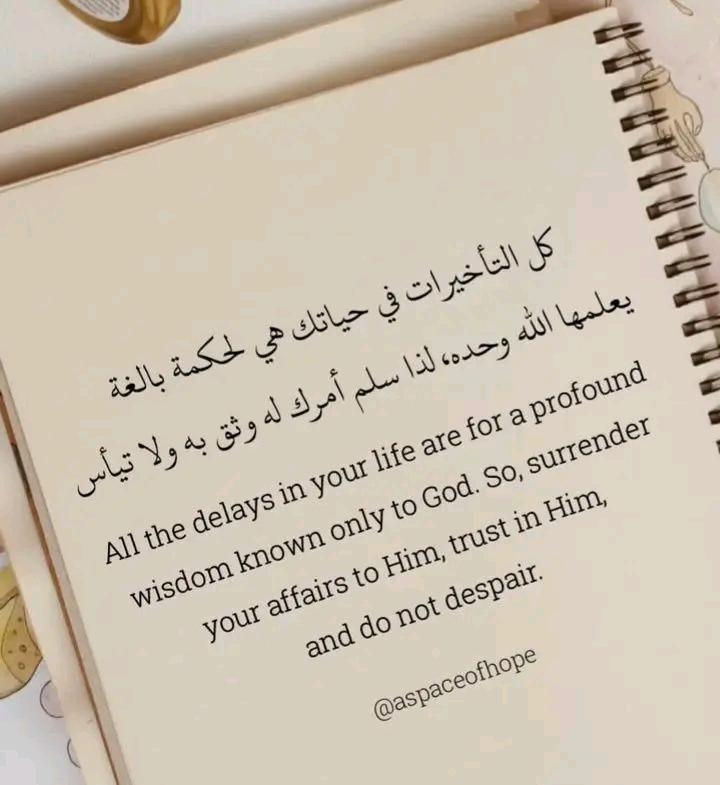 كل التأخيرات في حياتك هي لحكمة بالغة
يعلمها الله وحده، لذا سلم أمرك له وثق به ولا تيأس
All the delays in your life are for a profound
wisdom known only to God. So, surrender
your affairs to Him, trust in Him,
and do not despair.
@aspaceofhope